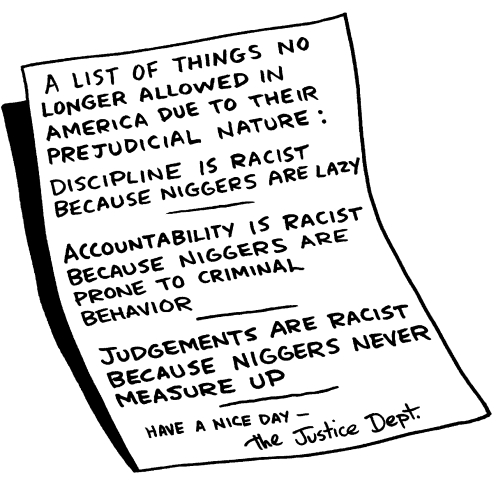 A LIST OF THINGS NO
LONGER ALLOWED IN
AMERICA DUE TO THEIR
PREJUDICIAL NATURE:
DISCIPLINE IS RACIST
BECAUSE NIGGERS ARE LAZY
ACCOUNTABILITY IS RACIST
BECAUSE NIGGERS ARE
PRONE TO CRIMINAL
BEHAVIOR
JUDGEMENTS ARE RACIST
BECAUSE NIGGERS NEVER
MEASURE UP
HAVE A NICE DAY —
the Justice Dept.